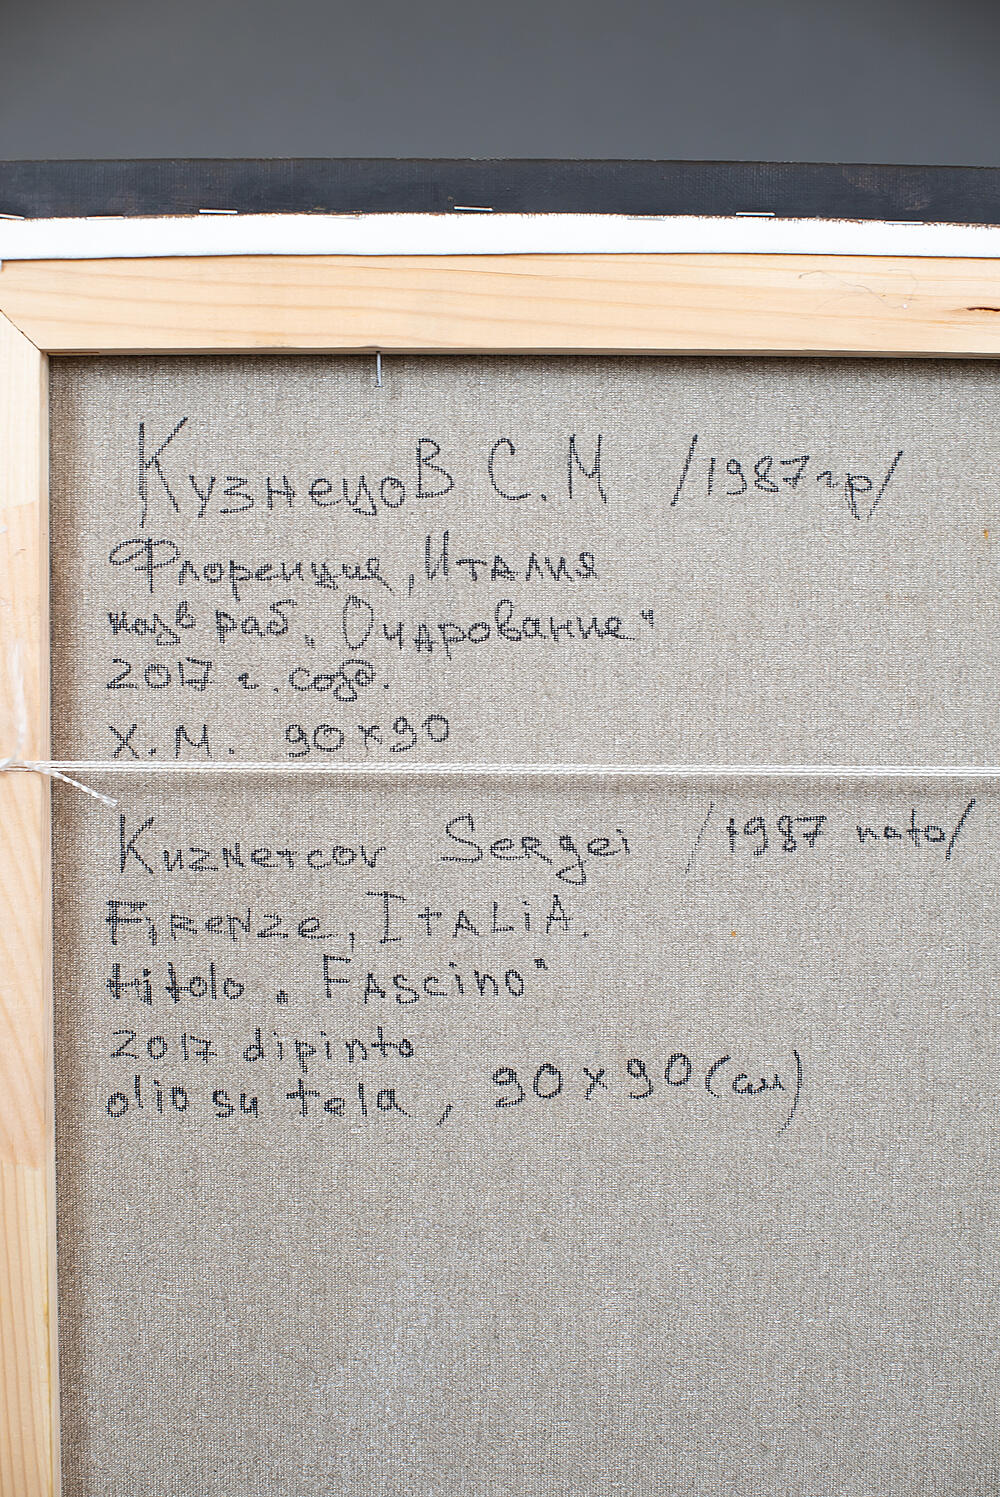 Кузнецов С.М /1987гр/
Флоренция, Италия
назв раб. „Очарование"
2017 г. созд.
Х.М. 90х90
Kuznetcov Sergei /1987 nato/
FiRenze, ITALiA.
titolo „FAscino"
2017 dipinto
olio su tela, 90x90(см)